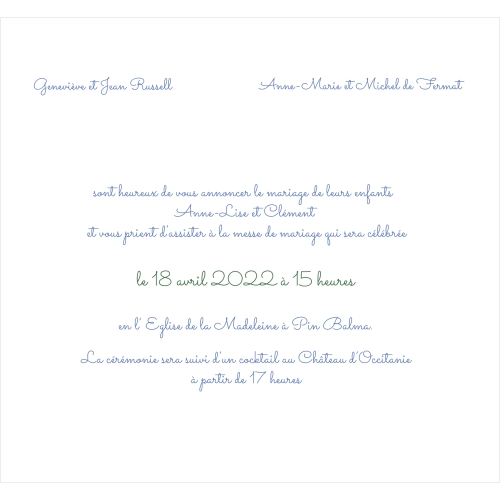 Geneviève et Jean Russell
Anne-Marie et Michel de Fermat
sont heureux de vous annoncer le mariage de leurs enfants
Anne-Lise et Clément
et vous prient d'assister à la messe de mariage qui sera célébrée
le 18 avril 2022 à 15 heures
en l' Eglise de la Madeleine à Pin Balma.
La cérémonie sera suivi d'un cocktail au Château d'Occitanie
à partir de 17 heures